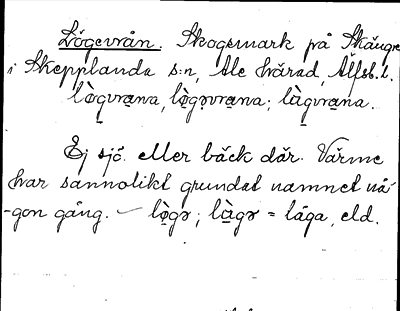 Lögevrån. Skogsmark på Skånge
i Skepplanda s:n, Ale härad, Älfsb. l.
lò̤gvrạna, lò̤gǝvrạna; là̤gvrạna.
Ej sjö eller bäck där. Värme
har sannolikt grundat namnet nå-
-gon gång. – lò̤gǝ; là̤gǝ = låga, eld.